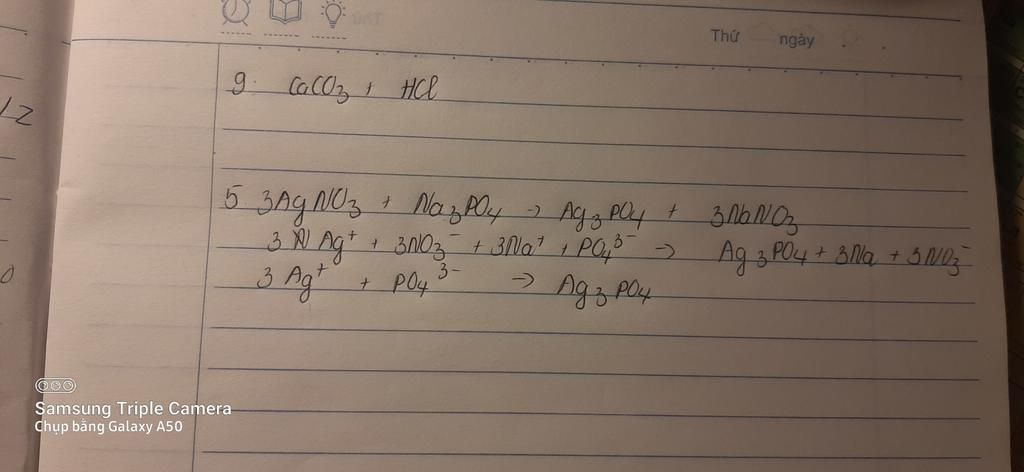 Thứ ngày
9. CaCO₃ + HCl
12
5. 3AgNO₃ + Na₃PO₄ → Ag₃PO₄ + 3NaNO₃
3 Ag⁺ + 3NO₃⁻ + 3Na⁺ + PO₄³⁻ → Ag₃PO₄ + 3Na + 3NO₃⁻
3 Ag⁺ + PO₄³⁻ → Ag₃PO₄
Samsung Triple Camera
Chụp bằng Galaxy A50